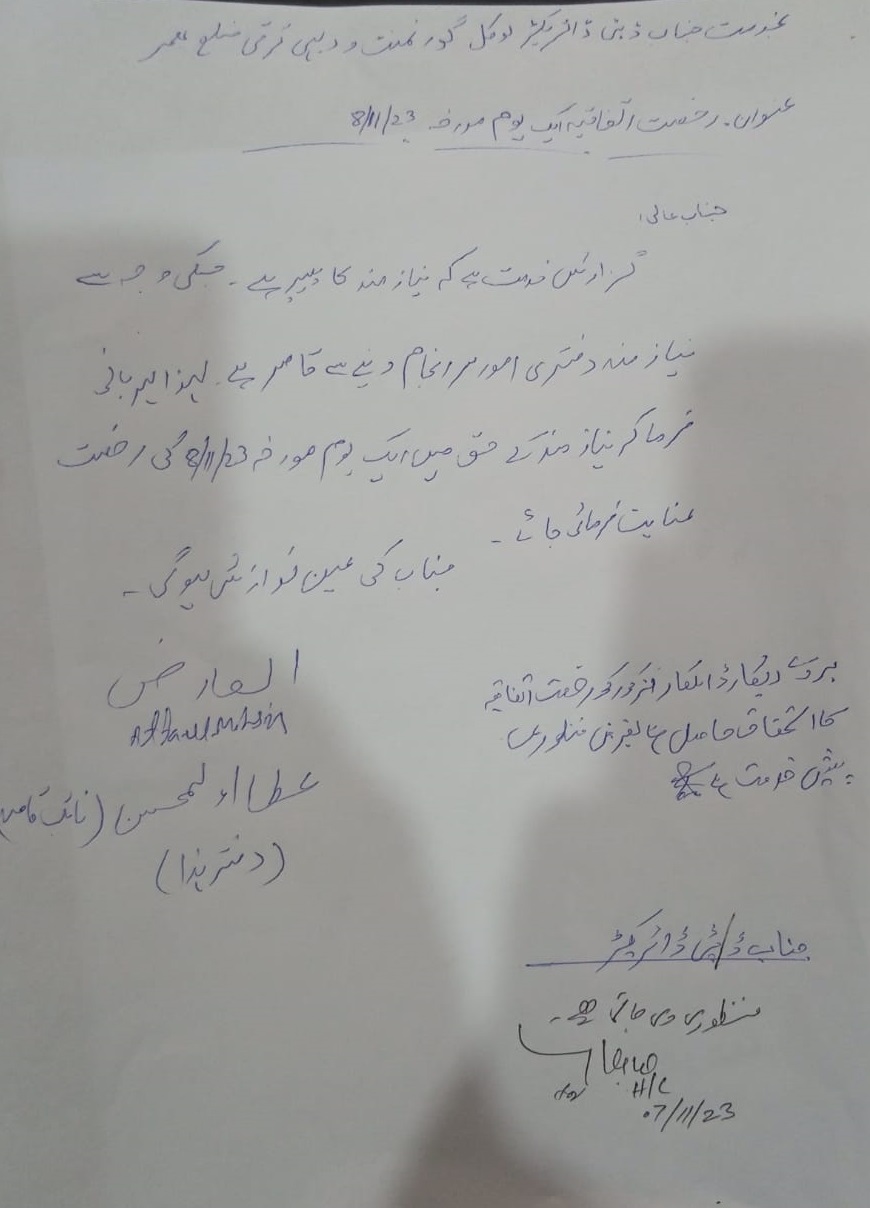 بخدمت جناب ڈپٹی ڈائریکٹر لوکل گورنمنٹ و دیہی ترقی ضلع بھمبر
عنوان۔ رخصت اتفاقیہ ایک یوم مورخہ 8/11/23
جناب عالی!
گزارش خدمت ہے کہ نیاز مند کا پیپر ہے۔ جسکی وجہ سے
نیاز مند دفتری امور سرانجام دینے سے قاصر ہے۔ لہذا مہربانی
فرما کر نیاز مند کے حق میں ایک یوم مورخہ 8/11/23 کی رخصت
عنایت فرمائی جائے۔
جناب کی عین نوازش ہوگی۔
العارض
Atta ul Mohsin
عطاء المحسن (نائب قاصد)
(دفتر ہذا)
بروئے ریکارڈ اہلکار مذکور کو رخصت اتفاقیہ
کا استحقاق حاصل ہے بغرض منظوری
پیش خدمت ہے
جناب ڈپٹی ڈائریکٹر
منظوری دی جاتی ہے۔
H/C
07/11/23